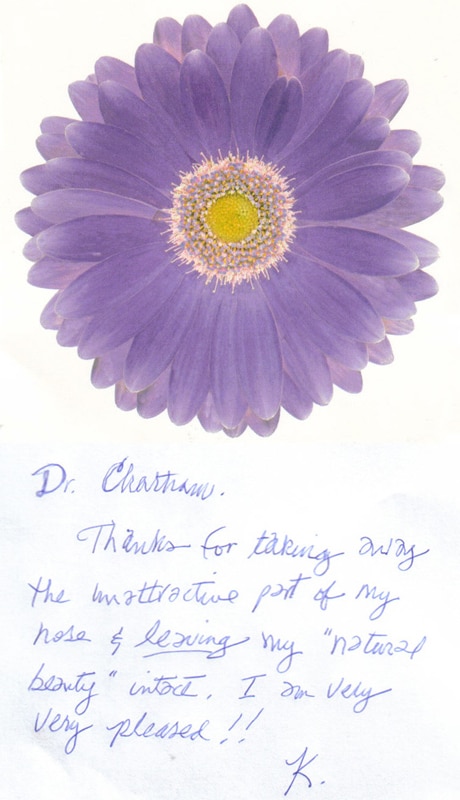 Dr. Chartham.
Thanks for taking away
the unattractive part of my
nose & leaving my "natural
beauty" intact. I am very
very pleased!!
K.